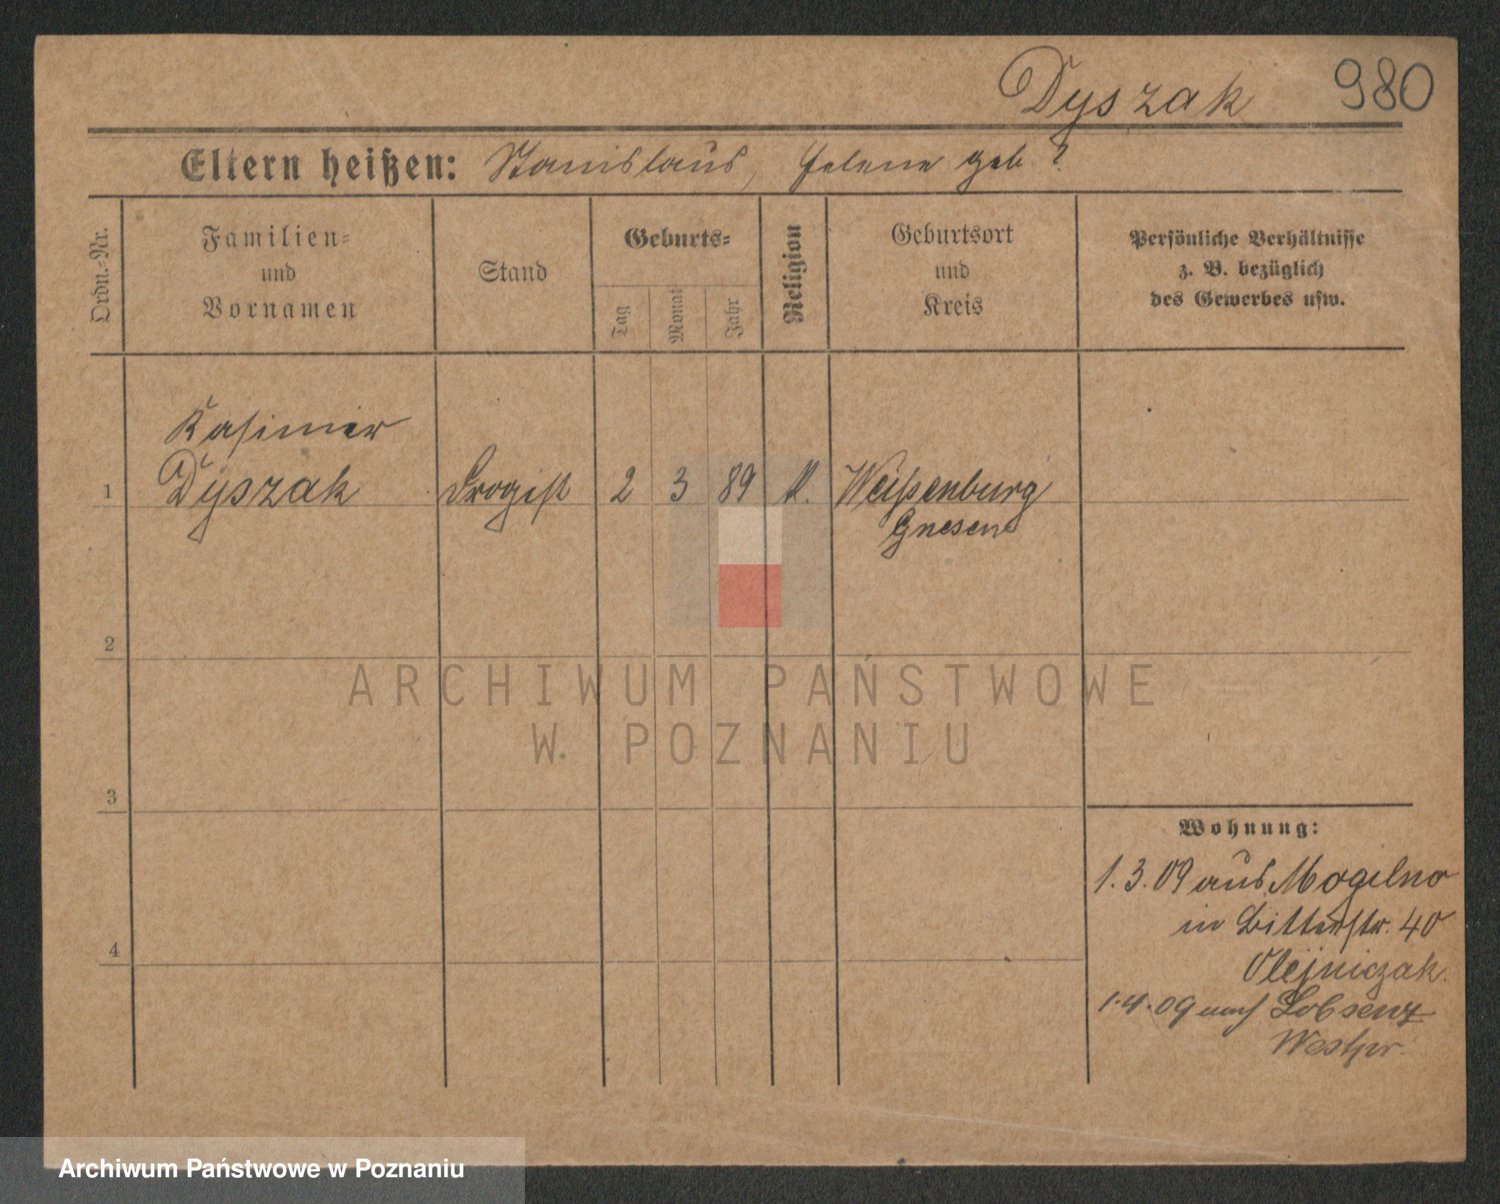 Dyszak 980
Eltern heißen: Stanislaus, Helene geb ?
Ordn.-Nr.
Familien-
und
Vornamen
Stand
Geburts-
Tag
Monat
Jahr
Religion
Geburtsort
und
Kreis
Persönliche Verhältnisse
z. B. bezüglich
des Gewerbes usw.
Kasimir
1 Dyszak Drogist 2 3 89 K. Weißenburg
Gnesen
2
3
4
ARCHIWUM PAŃSTWOWE
W POZNANIU
Wohnung:
1.3.09 aus Mogilno
in Bitterstr. 40
Olejniczak.
1.4.09 nach Lobsenz
Westpr.
Archiwum Państwowe w Poznaniu